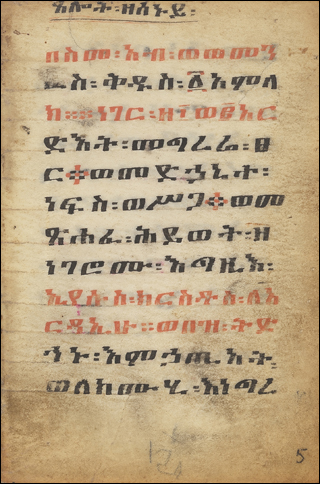 ጸሎት፡ዘሰኑይ፡
በስመ፡አብ፡ወወመን
ፈስ፡ቅዱስ፡፩አምላ
ክ። ነገር፡ዘ፲ወ፪አር
ድእት፡መግረሬ፡ፀ
ር፡ወመድኃኒተ፡
ነፍስ፡ወሥጋ፡ወመ
ጽሐፈ፡ሕይወት፡ዘ
ነገሮሙ፡እግዚእ፡
ኢየሱስ፡ክርስቶስ፡ለአ
ርዳኢሁ። ወበዝ፡ትድ
ኅኑ፡እምኃጢአት
ወለክሙሂ፡እነግረ
5